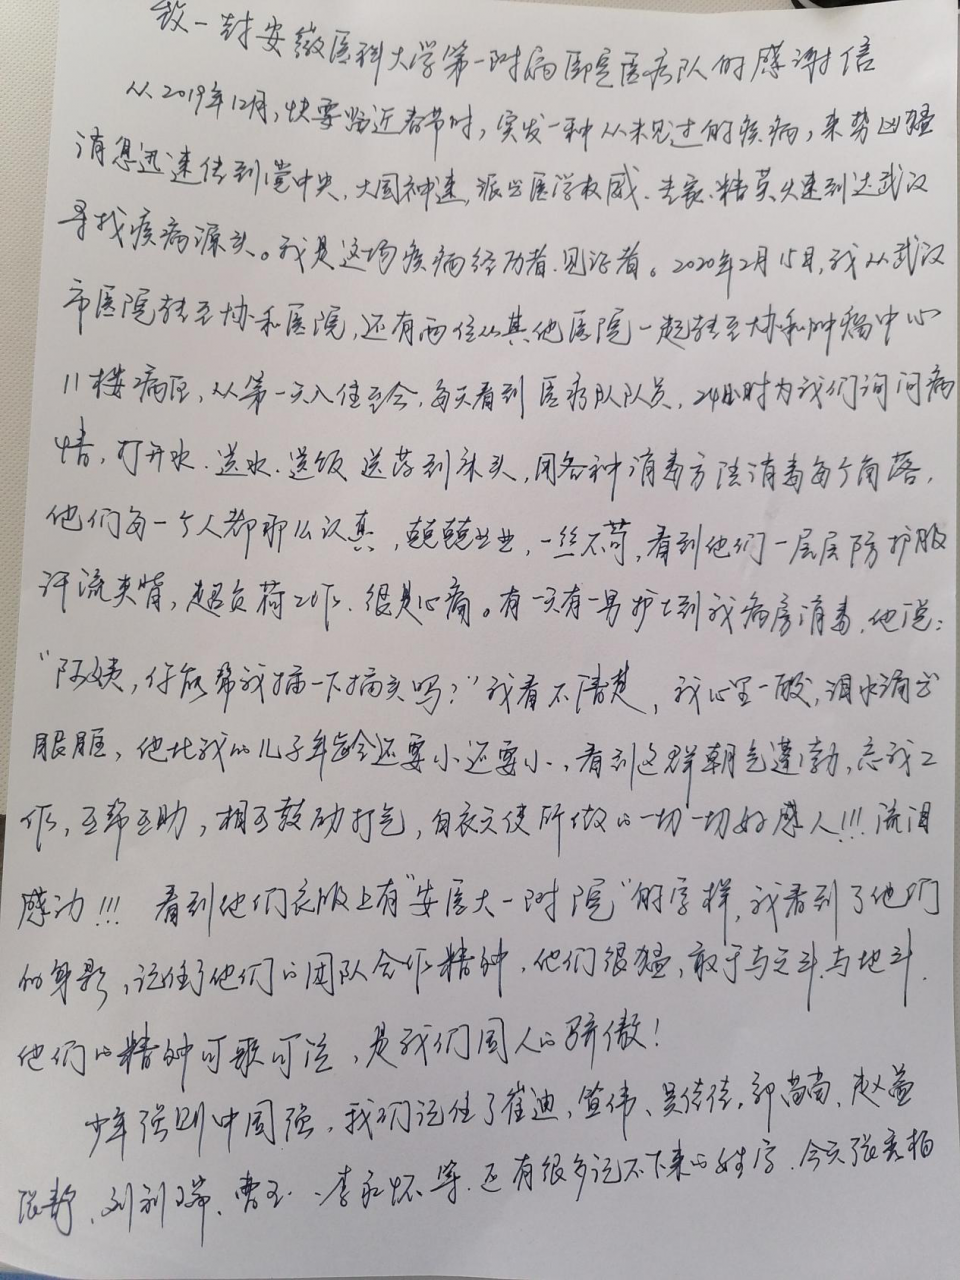 致一封安徽医科大学第一附属医院医疗队的感谢信
从2019年12月,快要临近春节时,突发一种从未见过的疾病,来势凶猛
消息迅速传到党中央、大国神速,派出医学权威、专家、精英火速到达武汉
寻找疾病源头。我是这场疾病经历者、见证者。2020年2月15日,我从武汉
市医院转至协和医院,还有两位从其他医院一起转至协和肿瘤中心
11楼2病区,从第一天入住至今,每天看到医疗队队员,24小时为我们询问病
情,打开水、送水、送饭 送药到床头,用各种消毒方法消毒每个角落,
他们每一个人都那么认真,兢兢业业,一丝不苟,看到他们一层层防护服
汗流夹背,超负荷工作、很是心痛。有一天有一男护士到我病房消毒,他说:
"阿姨,你能帮我插一下插头吗?"我看不清楚,我心里一酸,泪水涌出
眼眶,他比我的儿子年龄还要小还要小,看到这群朝气蓬勃,忘我工
作,互帮互助,相互鼓励打气,白衣天使所做的一切一切好感人!!!流泪
感动!!! 看到他们衣服上有"安医大一附院"的字样,我看到了他们
的身影,记住了他们的团队合作精神,他们很猛,敢于与天斗、与地斗.
他们的精神可歌可泣,是我们国人的骄傲!
少年强则中国强,我们记住了崔迪,宣伟、吴佳佳,郭尚尚、赵萱
张静、刘利瑞、曹玉、李永怀等,还有很多记不下来的姓名.今天张秀柏